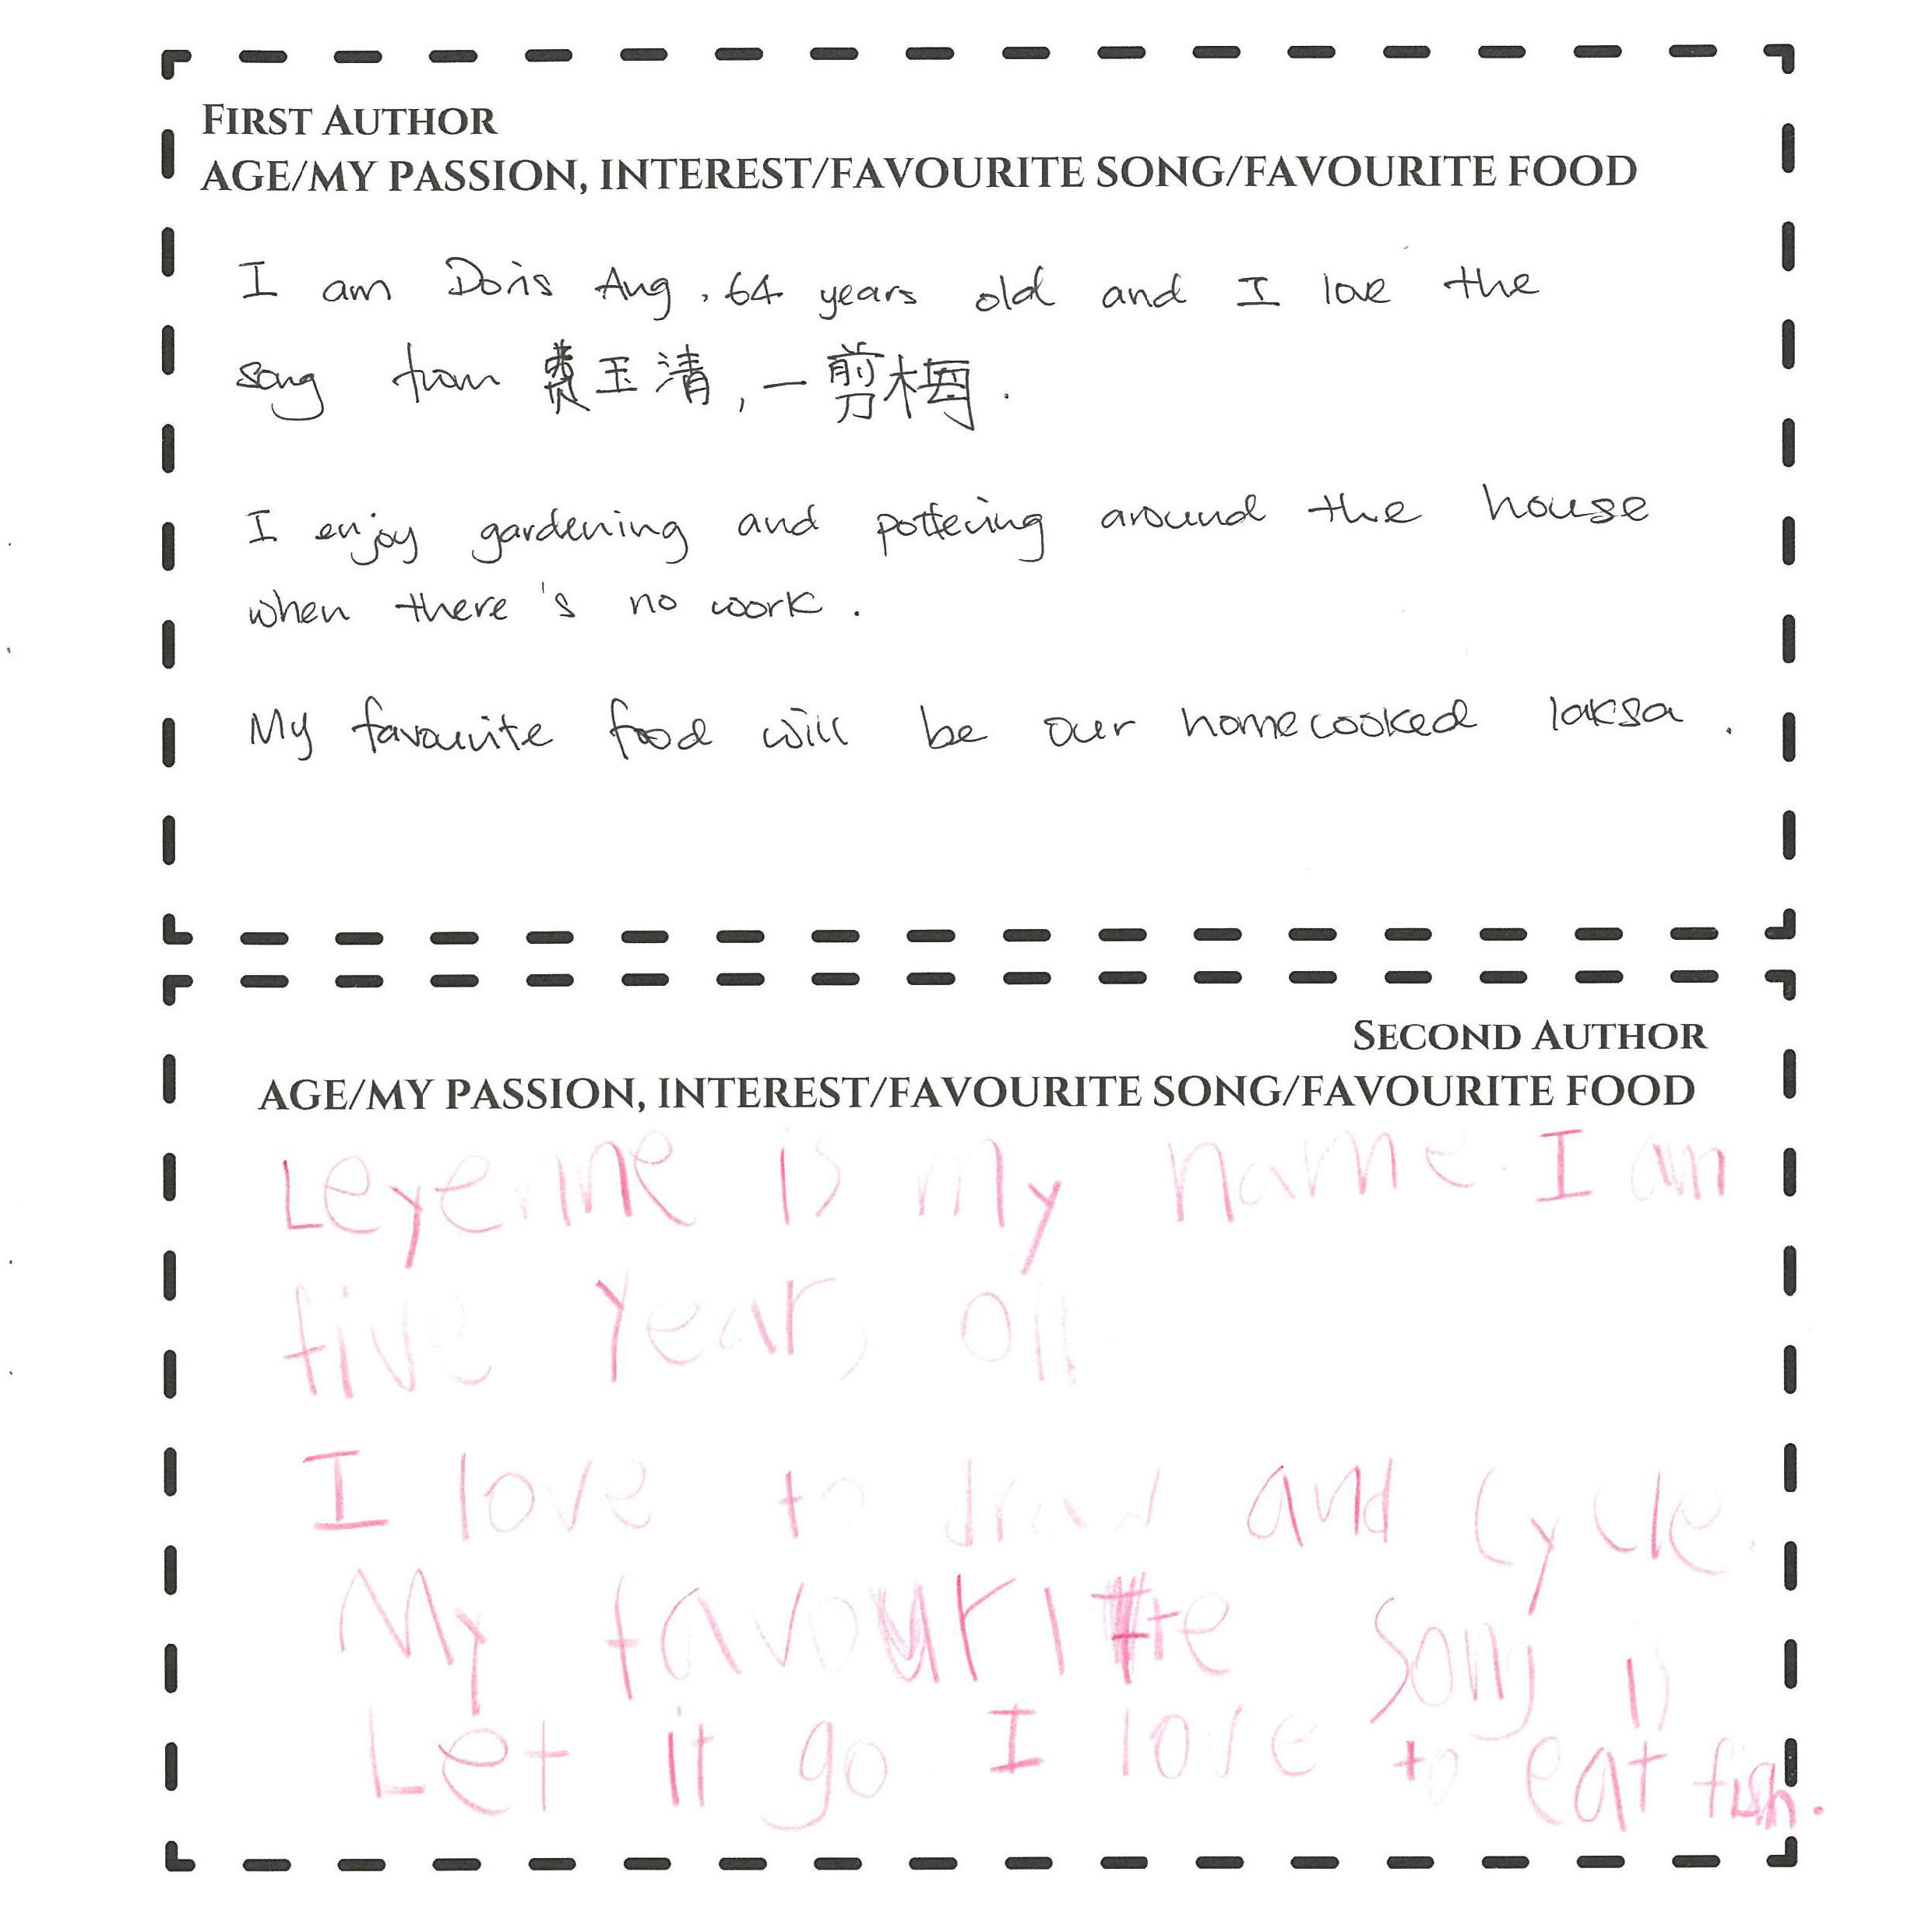 FIRST AUTHOR
AGE/MY PASSION, INTEREST/FAVOURITE SONG/FAVOURITE FOOD
I am Doris Ang, 64 years old and I love the
song from 费玉清, 一剪梅.
I enjoy gardening and pottering around the house
when there's no work.
My favourite food will be our homecooked laksa.
SECOND AUTHOR
AGE/MY PASSION, INTEREST/FAVOURITE SONG/FAVOURITE FOOD
is my name. I am
five years old
I love to draw and cycle.
My favourite song is
Let it go I love to eat fish.